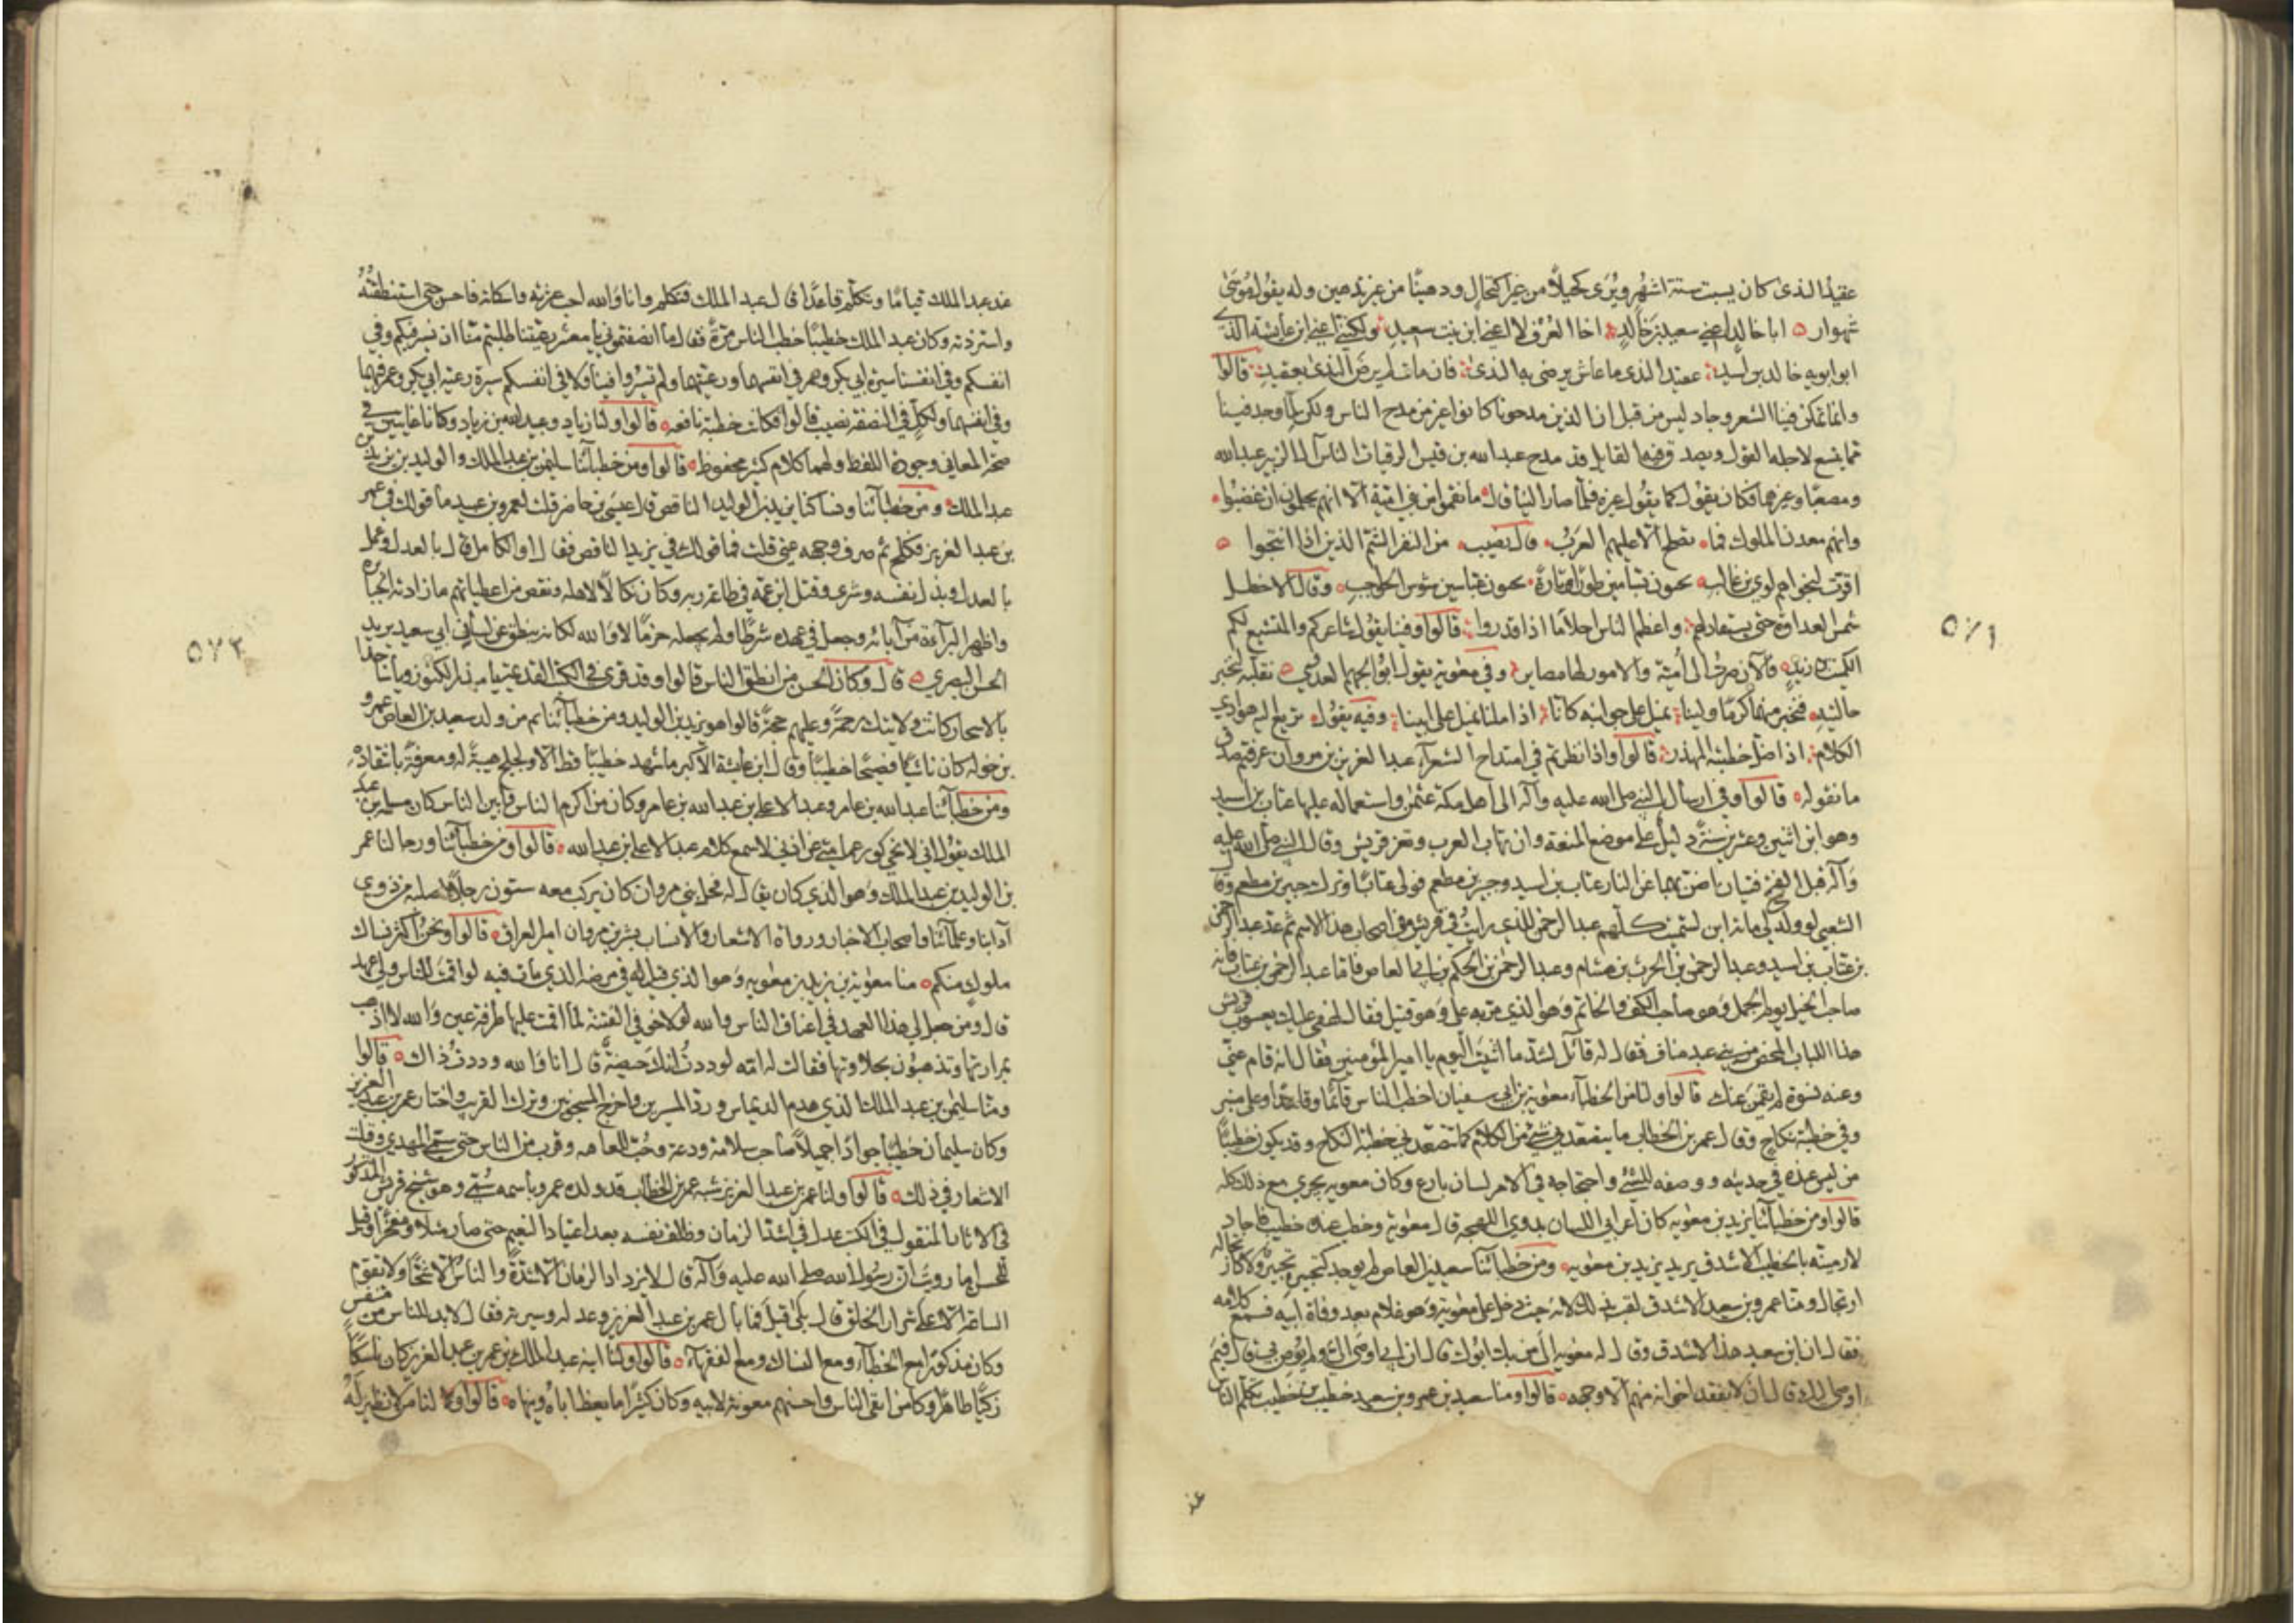 عقيد الذي كان يسبت ستة اشهر ويرى كحيلاً من غير اكتحال ودهينا من غير تدهين وله يقول موسى
شهوات ابا خالد اعني سعيد بن خالد اخا العرف لا اعني ابن بنت سعيد ولكنني اعني ابن عايشة الذي
ابو ابويه خالد بن اسيد عقيد الندى ما عاش يرضى به الندى فان مات لم يرض الندى بعقيد قالوا
وانما تمكن فينا الشعر وجاد ليس من قبل ان الذين مدحونا كانوا غير من مدح الناس ولكن لما وجد فينا
مما يتسع لاجله القول ويصدق فيه القايل قد مدح عبد الله بن قيس الرقيات الناس آل الزبير عبد الله
ومصعبا وغيرهما فكان يقول كما يقول غيره فلما صار الينا قال ما نقموا من بني امية الا انهم يحلمون ان غضبوا
وانهم معدن الملوك فما تصلح الا عليهم العرب وقال نصيب من النفر الشم الذين اذا انتجوا
اقرت لنجواهم لوي بن غالب يحيون بسامين طورا وتارة يحيون عباسين شوس الحواجب وقال الاخطل
شمس العداوة حتى يستقاد لهم واعظم الناس احلاما اذا قدروا قالوا وفينا يقول شاعركم والمتشيع لكم
الكميت بن زيد فالآن صرت الى امية والامور لها مصاير وفي معوية يقول ابو الجهم العدوي نقلبه لنخبر
حالتيه فنخبر منهما كرما ولينا نميل على جوانبه كانا اذا ملنا نميل على ابينا وفيه يقول تريع اليه هوادي
الكلام اذا ضل خطبته المهذر قالوا واذا نظرتم في امتداح الشعراء عبد العزيز بن مروان عرفتم صدق
ما نقوله قالوا وفي ارسال النبي صلى الله عليه وآله الى اهل مكة عثمن واستعماله عليها عتاب بن اسيد
وهو ابن اثنين وعشرين سنة دليل على موضع المنعة وان تهاب العرب وتعز قريش وقال النبي صلى الله عليه
وآله قبل الفتح فتيان اضن بهما عن النار عتاب بن اسيد وجبير بن مطعم فولى عتابا وترك جبير بن مطعم وقال
الشعبي لو ولد لي مائة ابن لسميت كلهم عبد الرحمن للذي رايت في قريش من اصحاب هذا الاسم ثم عد عبد الرحمن
بن عتاب بن اسيد وعبد الرحمن بن الحرث بن هشام وعبد الرحمن بن الحكم بن ابي العاص فاما عبد الرحمن بن عتاب فانه
صاحب الخيل يوم الجمل وهو صاحب الكف والخاتم وهو الذي مر به علي وهو قتيل فقال لهفي عليك يعسوب قريش
هذا اللباب المحض من بني عبد مناف فقال له قائل لشد ما اثنيت اليوم يا امير المؤمنين فقال انه قام عني
وعنه نسوة لم يقمن عنك قالوا ولنا من الخطباء معوية بن ابي سفيان اخطب الناس قائما وقاعدا وعلى منبر
وفي خطبة نكاح وقال عمر بن الخطاب ما يتصعدني شيء من الكلام كما تتصعدني خطبة النكاح وقد يكون خطيبا
من ليس عنده في حديثه ووصفه للشيء واحتجاجه في الامر لسان بارع وكان معوية يجري مع ذلك كله
قالوا ومن خطبائنا يزيد بن معوية كان اعرابي اللسان بدوي اللهجة قال معوية وخطب عنده خطيب فاجاد
لارمينه بالخطيب الاشدق يريد يزيد بن معوية ومن خطبائنا سعيد بن العاص لم يوجد كتحبيره تحبير ولا كارتجاله
ارتجال ومنا عمرو بن سعيد الاشدق لقب بذلك لانه حيث دخل على معوية وهو غلام بعد وفاة ابيه فسمع كلامه
فقال ان ابن سعيد هذا الاشدق وقال له معوية الى من بك ابوك قال ان ابي اوصى الي ولم يوص بي قال فبم
اوصى اليك قال ان لا يفقد اخوانه منهم الا وجهه قالوا ومنا سعيد بن عمرو بن سعيد خطيب بن خطيب تكلم الناس
عند
٥٧١
عند عبد الملك قياما وتكلم قاعدا قال عبد الملك فتكلم وانا والله احب عثرته واسكاته فاحسن حتى استنطقته
واستزدته وكان عبد الملك خطيبا خطب الناس مرة فقال ما انصفتموني يا معشر رعيتنا طلبتم منا ان نسير فيكم وفي
انفسكم وفي انفسنا سيرة ابي بكر وعمر في انفسهما ورعيتهما ولم تسيروا فينا ولا في انفسكم سيرة رعية ابي بكر وعمر فيهما
وفي انفسهما ولكل في النصفة نصيب قالوا فكانت خطبة نافعة قالوا ولنا زياد وعبيد الله بن زياد وكانا غايتين في
صحة المعاني وجودة اللفظ ولهما كلام كثير محفوظ قالوا ومن خطبائنا سليمن بن عبد الملك والوليد بن يزيد بن
عبد الملك ومن خطبائنا ونساكنا يزيد بن الوليد الناقص قال عيسى بن حاضر قلت لعمرو بن عبيد ما قولك في عمر
بن عبد العزيز فكلح ثم صرف وجهه عني قلت فما قولك في يزيد الناقص فقال او الكامل قال بالعدل وعمل
بالعدل وبذل نفسه وشرى وقتل ابن عمه في طاعة ربه وكان نكالا لاهله ونقص من اعطياتهم ما زادته الجبابرة
واظهر البراءة من آبائه وجعل في عهده شرطا ولم يجعله حزما لا والله لكانه ينطق عن لسان ابي سعيد يريد
الحسن البصري قال وكان الحسن من انطق الناس قالوا وقد قرئ في الكتب القديمة يا مبذر الكنوز ويا ساجدا
بالاسحار كانت ولايتك رحمة وعليهم حجة قالوا هو يزيد بن الوليد ومن خطبائنا ثم من ولد سعيد بن العاص عمرو
بن خولة كان ناسبا فصيحا خطيبا وقال ابن عايشة الاكبر ما شهد خطيبا قط الا ولجلج هيبة له ومعرفة بانتقاده
ومن خطبائنا عبد الله بن عامر وعبد الاعلى بن عبد الله بن عامر وكان من اكرم الناس وابين الناس كان مسلمة بن عبد
الملك يقول اني لانحي كور عمامتي عن اذني لاسمع كلام عبد الاعلى بن عبد الله قالوا ومن خطبائنا ورجالنا عمر
بن الوليد بن عبد الملك وهو الذي كان يقال له فحل بني مروان كان يركب معه ستون رجلا لصلبه من ذوي
آدابنا وعلمائنا واصحاب الاخبار ورواة الاشعار والانساب بشر بن مروان امير العراق قالوا ونحن اكثر نساك
ملوك منكم منا معوية بن يزيد بن معوية وهو الذي قيل له في مرضه الذي مات فيه لو اقمت للناس ولي عهد
قال ومن جعل لي هذا العهد في اعناق الناس والله لولا خوفي الفتنة لما اقمت عليها طرفة عين والله لا اذهب
بمرارتها وتذهبون بحلاوتها فقالت له امه لوددت انك حيضة قال انا والله وددت ذاك قالوا
ومنا سليمن بن عبد الملك الذي هدم الديماس ورد المسيرين واخرج المسجونين وترك القريب واختار عمر بن عبد العزيز
وكان سليمان خطيبا جوادا جميلا صاحب سلامة ودعة وحب للعافية وقرب من الناس حتى سمي المهدي وقلت
الاشعار في ذلك قالوا ولنا عمر بن عبد العزيز شبه عمر بن الخطاب قد ولده عمر وباسمه سمي وهو شيخ قريش المذكور
في الاثار المنقول في الكتب عدل في اشد الزمان وظلف نفسه بعد اعتياد النعيم حتى صار مثلا ومفخرا وقيل
للحسن اما رويت ان رسول الله صلى الله عليه وآله قال لا يزداد الزمان الا شدة والناس الا شحا ولا تقوم
الساعة الا على شرار الخلق قال بلى قيل فما بال عمر بن عبد العزيز وعدله وسيرته فقال لا بد للناس من متنفس
وكان مذكورا مع الخطباء ومع النساك ومع الفقهاء قالوا ولنا ابنه عبد الملك بن عمر بن عبد العزيز كان ناسكا
زكيا طاهرا وكان من اتقى الناس واحسنهم معونة لابيه وكان كثيرا ما يعظ اباه وينهاه قالوا ولنا من لا نظير له
٥٧٢